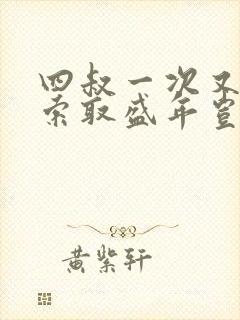 四叔一次又
索取盛年岂
黄紫轩